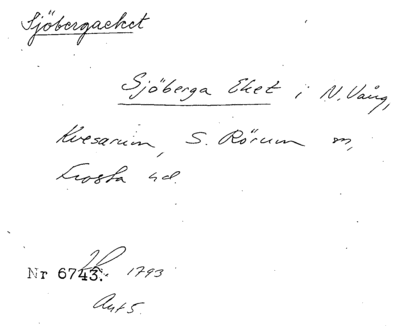 Sjöbergaeket
Sjöberga Eket i N. Vång,
Kvesarum, S. Rörum m,
Frosta hd.
Nr 6743. 1793
Akt 5.